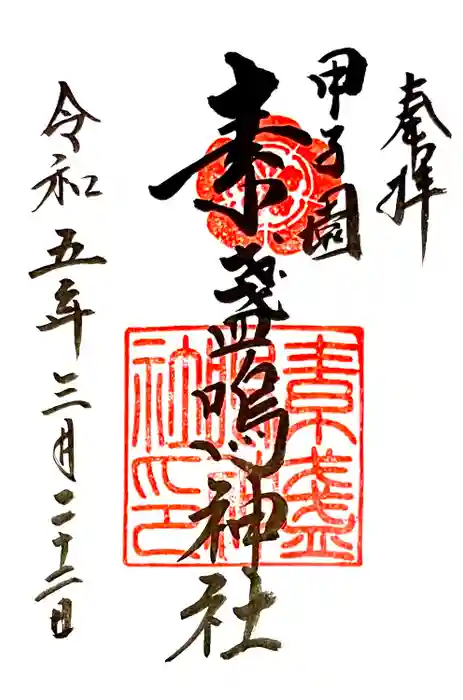 奉拝
甲子園
素盞嗚神社
素盞
嗚神
社印
令和五年三月二十二日